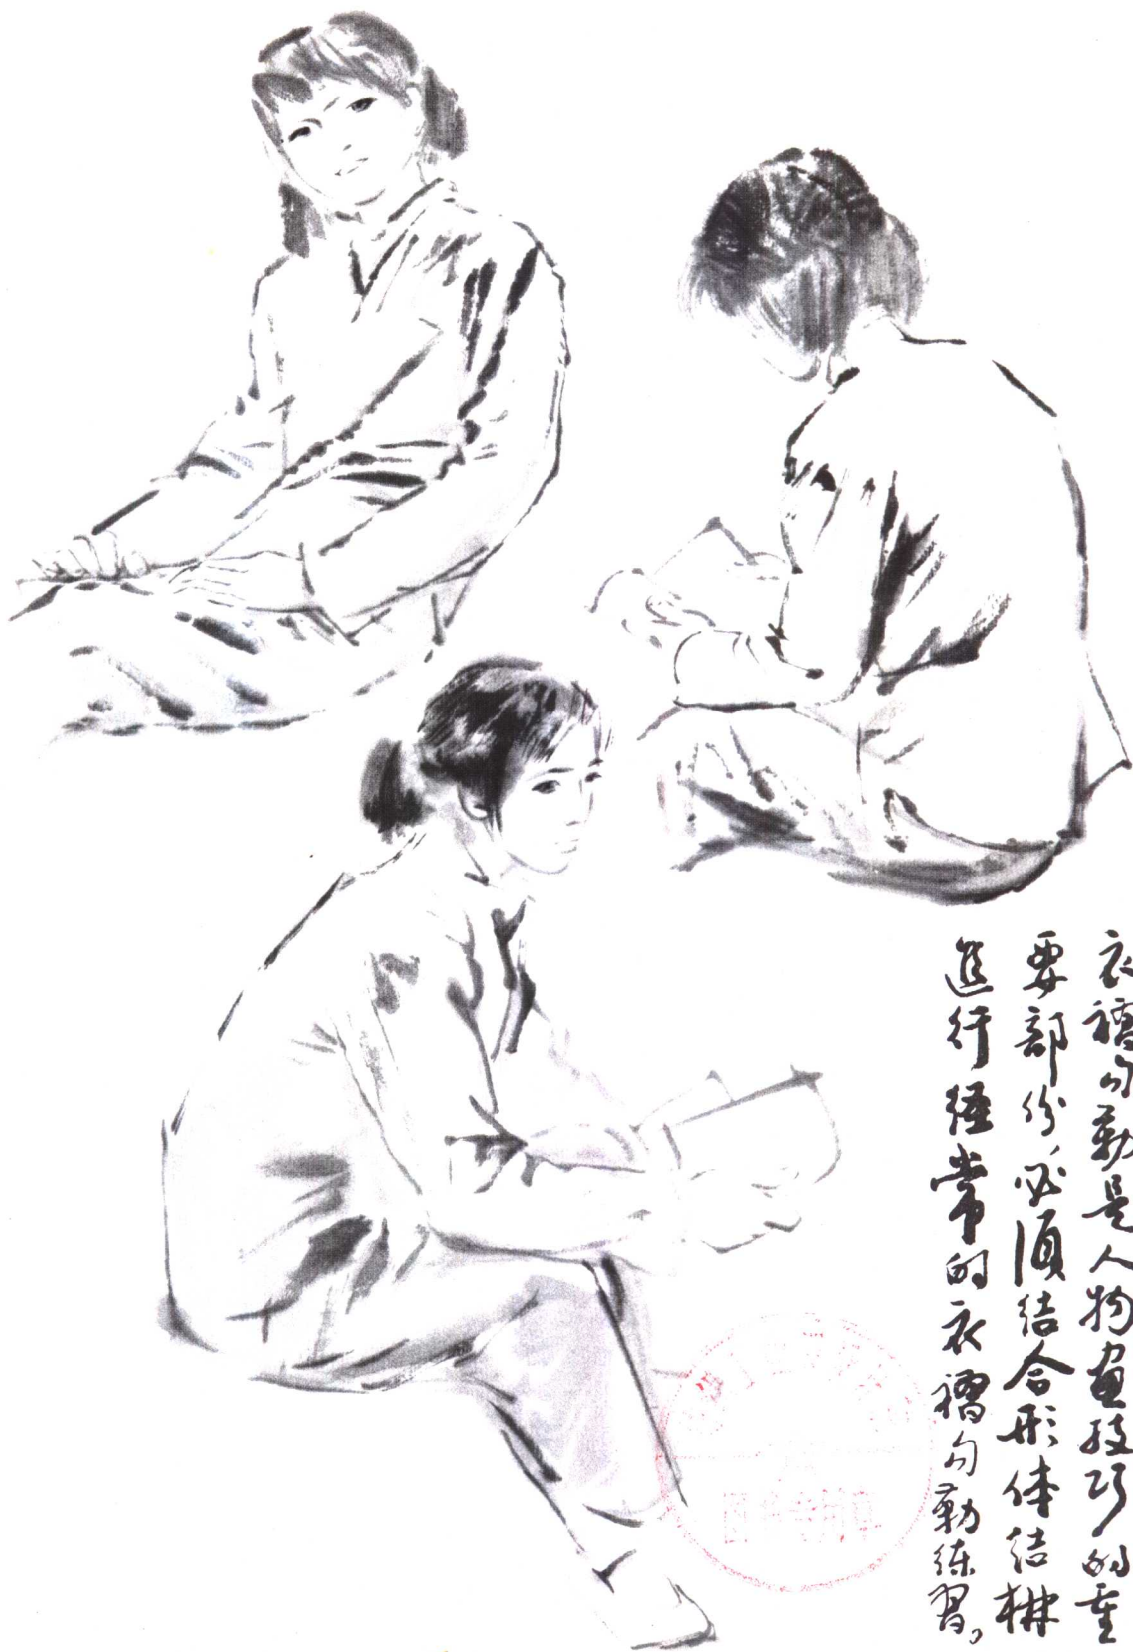 衣褶勾勒是人物画技巧的重
要部份，必须结合形体结构
進行经常的衣褶勾勒练習。